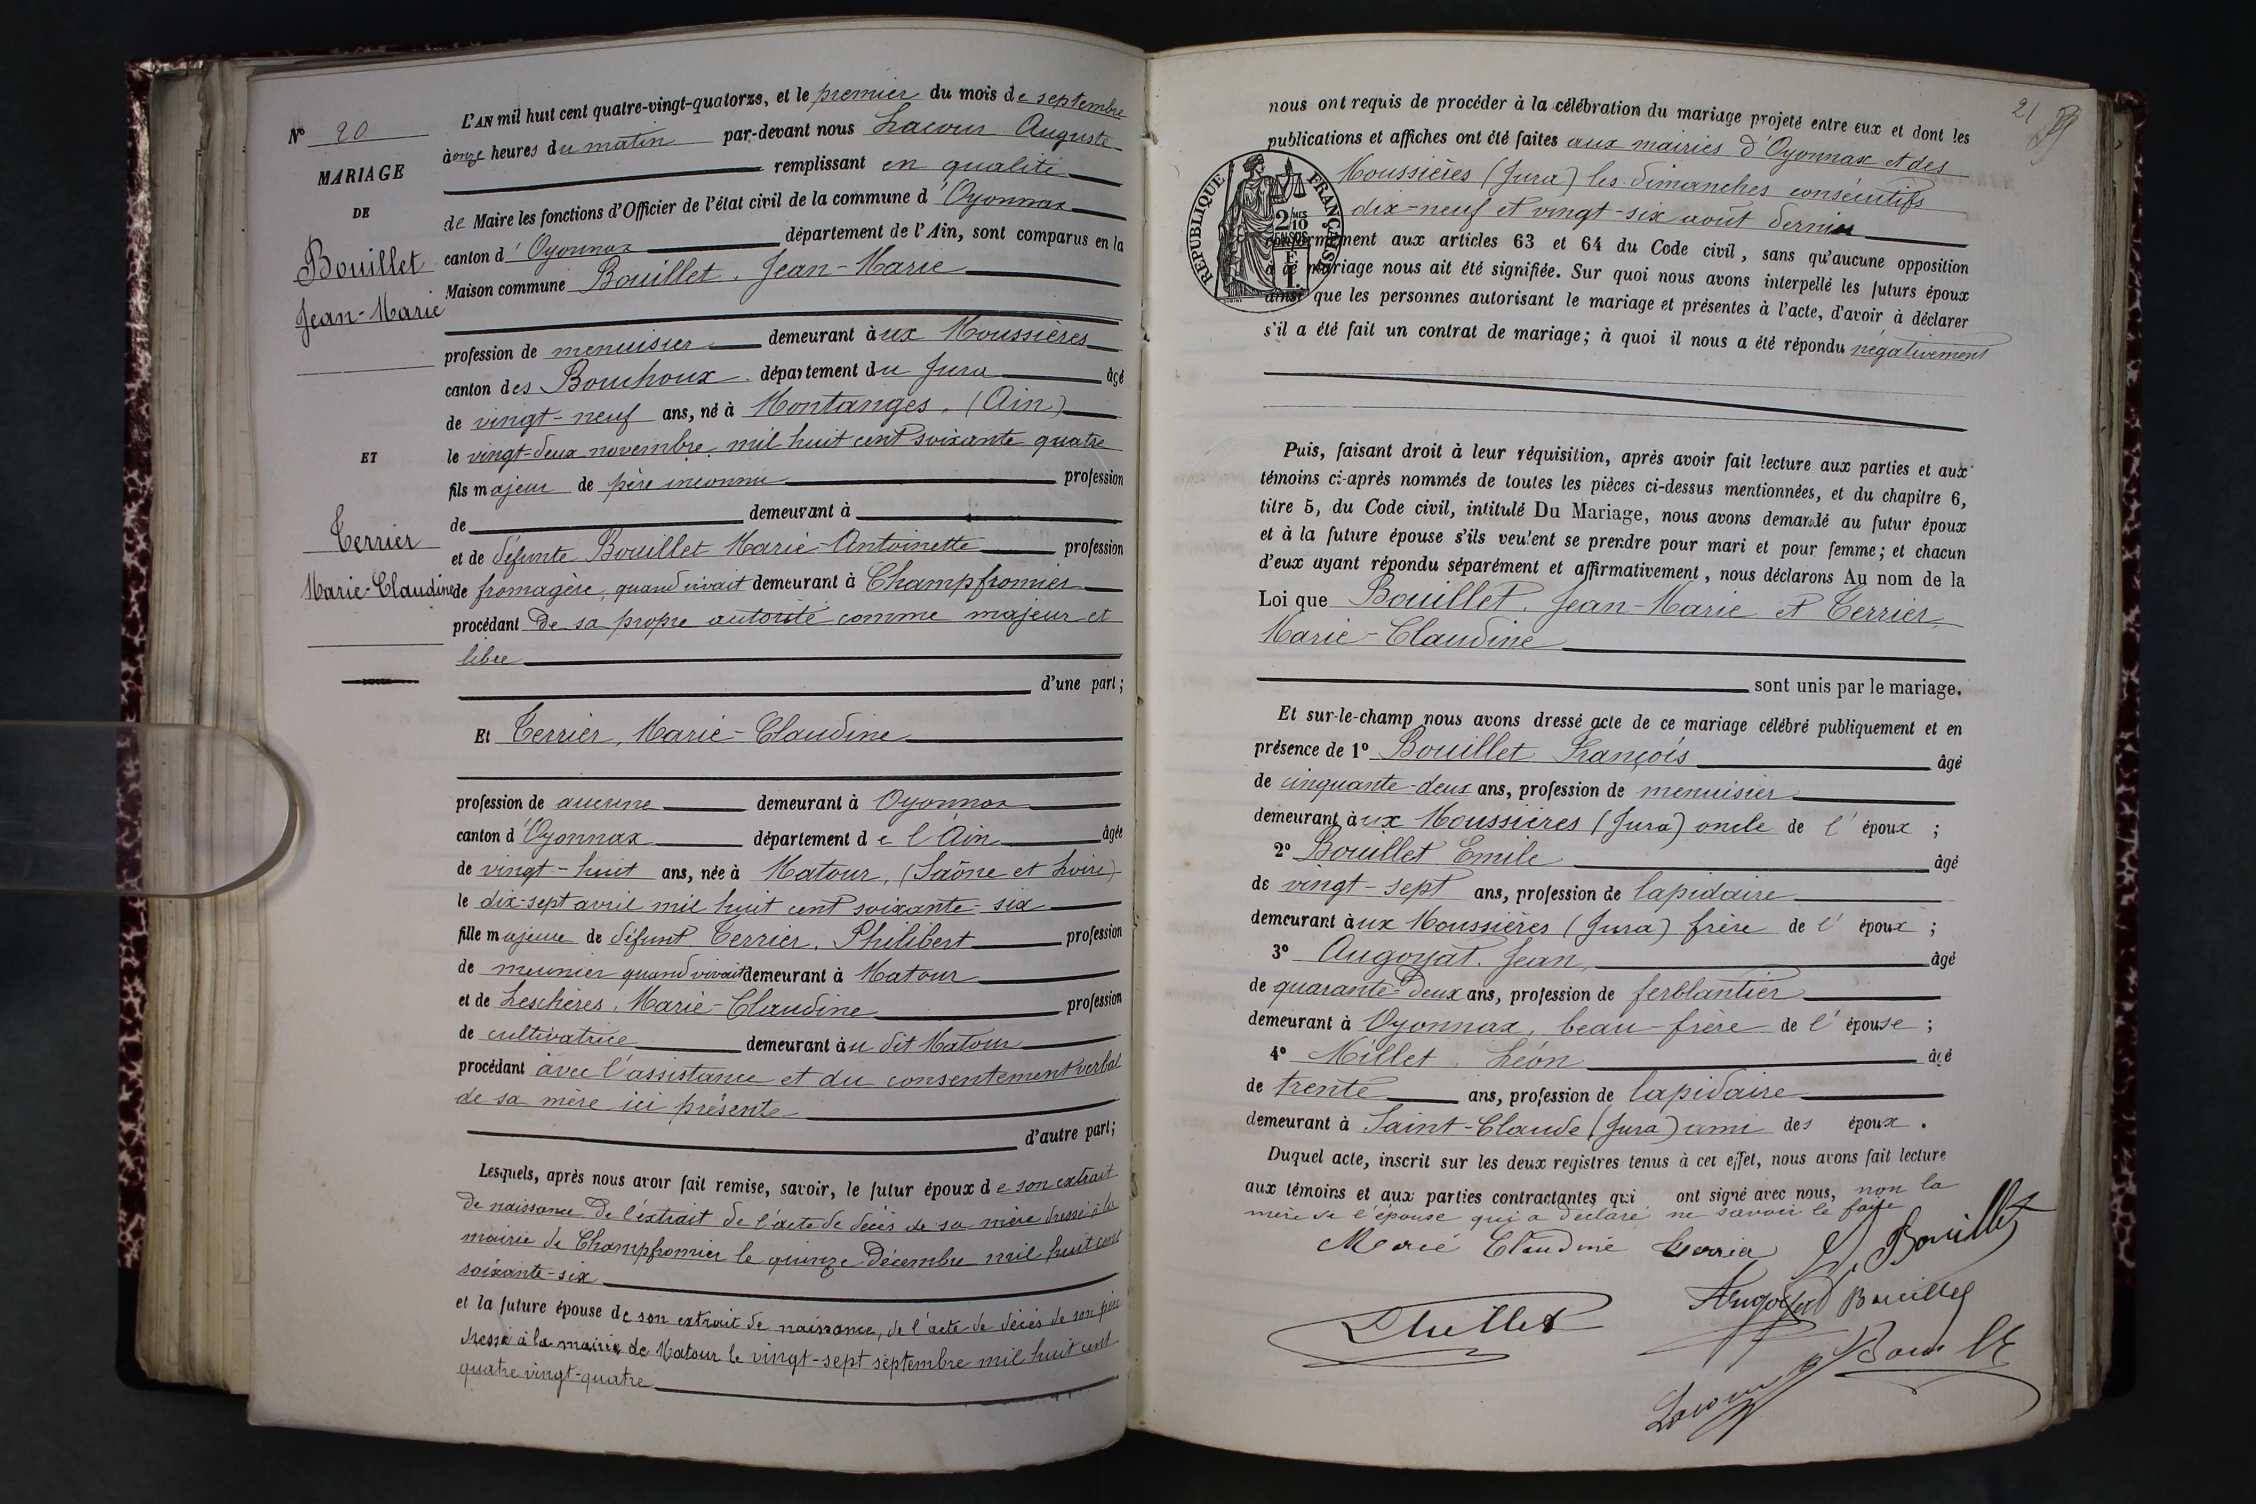 N° 20
MARIAGE
DE
Bouillet
Jean-Marie
ET
Terrier
Marie-Claudine
L'AN mil huit cent quatre-vingt-quatorze, et le premier du mois de septembre
à onze heures du matin par-devant nous Lacour Auguste
remplissant en qualité
de Maire les fonctions d'Officier de l'état civil de la commune d'Oyonnax
canton d'Oyonnax département de l'Ain, sont comparus en la
Maison commune Bouillet. Jean-Marie
profession de menuisier demeurant aux Moussières
canton des Bouchoux. département du Jura âgé
de vingt-neuf ans, né à Montanges. (Ain)
le vingt-deux novembre mil huit cent soixante quatre
fils majeur de père inconnu profession
de demeurant à
et de défunte Bouillet Marie-Antoinette profession
de fromagère, quand vivait demeurant à Champfromier
procédant de sa propre autorité comme majeur et
libre
d'une part;
Et Terrier, Marie-Claudine
profession de aucune demeurant à Oyonnax
canton d'Oyonnax département de l'Ain âgée
de vingt-huit ans, née à Matour, (Saône et Loire)
le dix-sept avril mil huit cent soixante-six
fille majeure de défunt Terrier, Philibert profession
de meunier quand vivait demeurant à Matour
et de Leschères, Marie-Claudine profession
de cultivatrice demeurant au dit Matour
procédant avec l'assistance et du consentement verbal
de sa mère ici présente
d'autre part;
Lesquels, après nous avoir fait remise, savoir, le futur époux de son extrait
de naissance de l'extrait de l'acte de décès de sa mère dressé à la
mairie de Champfromier le quinze Décembre mil huit cent
soixante-six
et la future épouse de son extrait de naissance, de l'acte de décès de son père
dressé à la mairie de Matour le vingt-sept septembre mil huit cent
quatre vingt-quatre
21
nous ont requis de procéder à la célébration du mariage projeté entre eux et dont les
publications et affiches ont été faites aux mairies d'Oyonnax et des
Moussières (Jura) les dimanches consécutifs
dix-neuf et vingt-six août dernier
conformément aux articles 63 et 64 du Code civil, sans qu'aucune opposition
à ce mariage nous ait été signifiée. Sur quoi nous avons interpellé les futurs époux
ainsi que les personnes autorisant le mariage et présentes à l'acte, d'avoir à déclarer
s'il a été fait un contrat de mariage; à quoi il nous a été répondu négativement
RÉPUBLIQUE FRANÇAISE
2/10
EN SUS
1 F.
Puis, faisant droit à leur réquisition, après avoir fait lecture aux parties et aux
témoins ci-après nommés de toutes les pièces ci-dessus mentionnées, et du chapitre 6,
titre 5, du Code civil, intitulé Du Mariage, nous avons demandé au futur époux
et à la future épouse s'ils veulent se prendre pour mari et pour femme; et chacun
d'eux ayant répondu séparément et affirmativement, nous déclarons Au nom de la
Loi que Bouillet. Jean-Marie et Terrier,
Marie-Claudine
sont unis par le mariage.
Et sur-le-champ nous avons dressé acte de ce mariage célébré publiquement et en
présence de 1° Bouillet François âgé
de cinquante-deux ans, profession de menuisier
demeurant aux Moussières (Jura) oncle de l'époux;
2° Bouillet Emile âgé
de vingt-sept ans, profession de lapidaire
demeurant aux Moussières (Jura) frère de l'époux;
3° Augoyat. Jean, âgé
de quarante-deux ans, profession de ferblantier
demeurant à Oyonnax, beau-frère de l'épouse;
4° Millet. Léon âgé
de trente ans, profession de lapidaire
demeurant à Saint-Claude (Jura) ami des époux.
Duquel acte, inscrit sur les deux registres tenus à cet effet, nous avons fait lecture
aux témoins et aux parties contractantes qui ont signé avec nous, non la
mère de l'épouse qui a déclaré ne savoir le faire
Marie Claudine Terrier Bouillet
Augoyat Bouillet
LMillet
Bouillet
Lacour